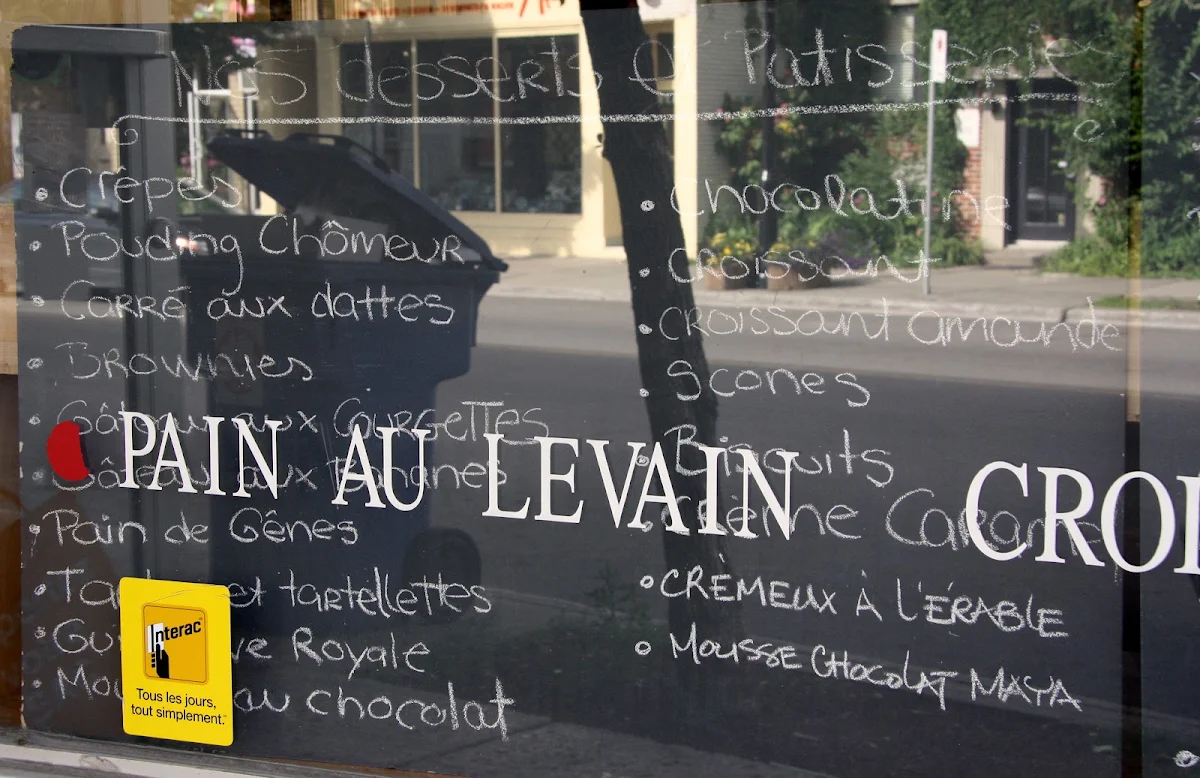 Nos desserts et Patisserie
Crêpes
Pouding Chômeur
Carré aux dattes
Brownies
Gâteau aux Courgettes
Gâteau aux Bananes
Pain de Gênes
et tartellettes
Royale
au chocolat
Chocolatine
Croissant
Croissant amande
Scones
Biscuits
CRÉMEUX À L'ÉRABLE
MOUSSE CHOCOLAT MAYA
PAIN AU LEVAIN CROI
Interac
Tous les jours,
tout simplement.